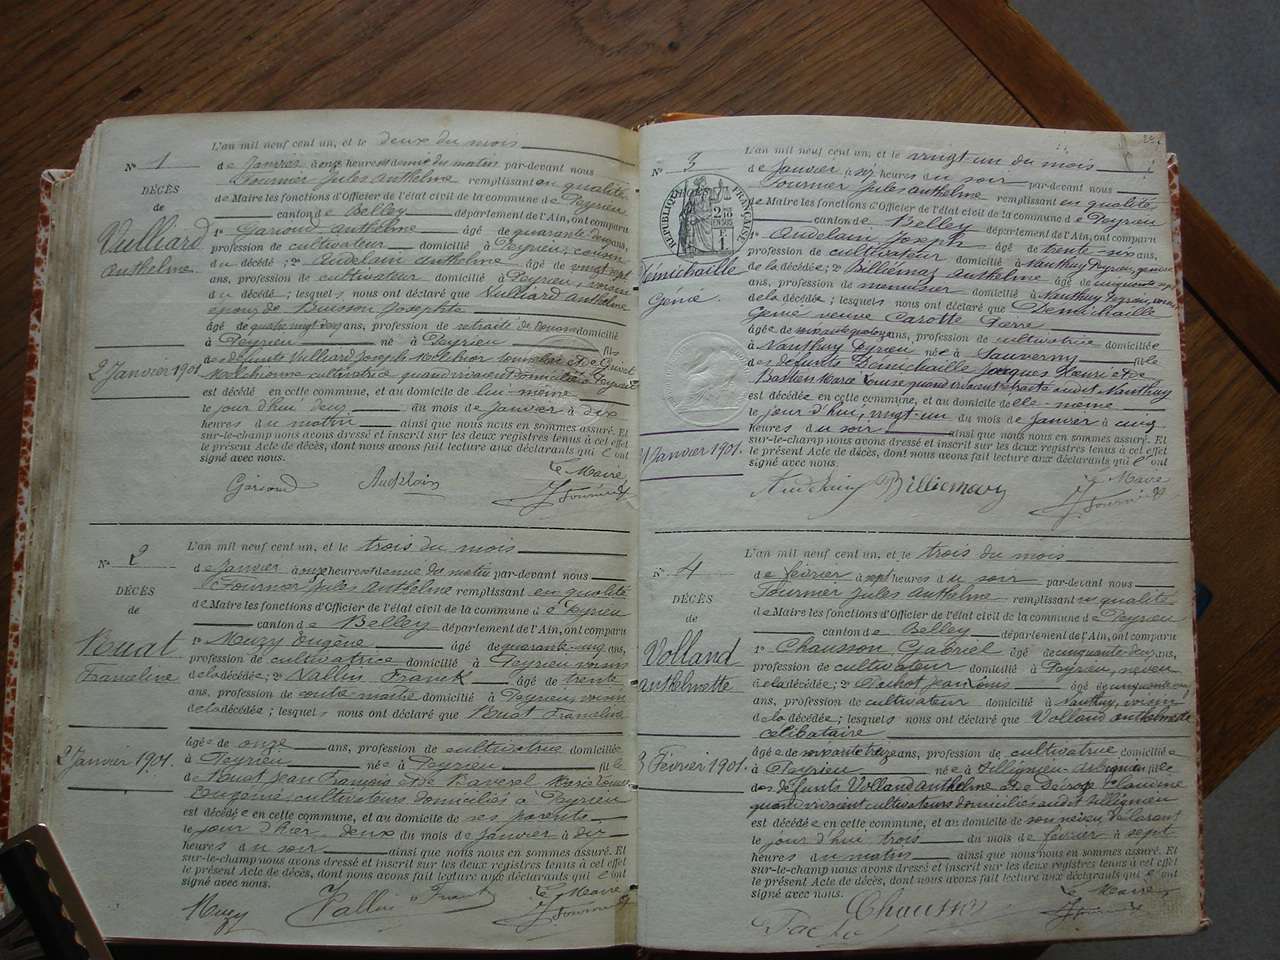 N° 1
DÉCÈS
de
Vulliard
Anthelme
2 Janvier 1901
L'an mil neuf cent un, et le deux du mois
de Janvier à onze heures et demie du matin par-devant nous
Fournier Jules Anthelme remplissant en qualité
de Maire les fonctions d'Officier de l'état civil de la commune de Peyrieu
canton de Belley département de l'Ain, ont comparu
1° Garioud Anthelme âgé de quarante deux ans,
profession de cultivateur domicilié à Peyrieu, cousin
du décédé; 2° Audelain Anthelme âgé de vingt sept
ans, profession de cultivateur domicilié à Peyrieu, voisin
du décédé; lesquels nous ont déclaré que Vulliard Anthelme
époux de Buisson Josephte
âgé de quatre vingt deux ans, profession de retraité de domicilié
à Peyrieu né à Peyrieu fils
des défunts Vulliard Joseph Melchior et de
Melchionne cultivatrice quand vivaient domiciliés à Peyrieu
est décédé en cette commune, et au domicile de lui-même
le jour d'hui deux du mois de Janvier à dix
heures du matin ainsi que nous nous en sommes assuré. Et
sur-le-champ nous avons dressé et inscrit sur les deux registres tenus à cet effet
le présent Acte de décès, dont nous avons fait lecture aux déclarants qui l'ont
signé avec nous.
Garioud Audelain Le Maire
J Fournier
N° 2
DÉCÈS
de
Buat
Franceline
2 Janvier 1901
L'an mil neuf cent un, et le trois du mois
de Janvier à onze heures et demie du matin par-devant nous
Fournier Jules Anthelme remplissant en qualité
de Maire les fonctions d'Officier de l'état civil de la commune de Peyrieu
canton de Belley département de l'Ain, ont comparu
1° Muzy Eugène âgé de quarante-cinq ans,
profession de cultivatrice domicilié à Peyrieu voisin
de la décédée; 2° Vallin Franck âgé de trente
ans, profession de contre-maître domicilié à Peyrieu, voisin
de la décédée; lesquels nous ont déclaré que Buat Franceline
âgée de onze ans, profession de cultivatrice domiciliée
à Peyrieu née à Peyrieu fille
de Buat Jean François et de Baverel Marie Louise
Eugénie, cultivateurs domiciliés à Peyrieu
est décédée en cette commune, et au domicile de ses parents
le jour d'hier deux du mois de Janvier à dix
heures du soir ainsi que nous nous en sommes assuré. Et
sur-le-champ nous avons dressé et inscrit sur les deux registres tenus à cet effet
le présent Acte de décès, dont nous avons fait lecture aux déclarants qui l'ont
signé avec nous.
Muzy Vallin Franck Le Maire
J Fournier
N° 3
RÉPUBLIQUE FRANÇAISE
Démichaille
Génie
21 Janvier 1901
L'an mil neuf cent un, et le vingt un du mois
de Janvier à six heures du soir par-devant nous
Fournier Jules Anthelme remplissant en qualité
de Maire les fonctions d'Officier de l'état civil de la commune de Peyrieu
canton de Belley département de l'Ain, ont comparu
1° Audelain Joseph âgé de trente six ans,
profession de cultivateur domicilié à Nanthuy Peyrieu, gendre
de la décédée; 2° Billiemaz Anthelme âgé de cinquante
ans, profession de menuisier domicilié à Nanthuy Peyrieu, voisin
de la décédée; lesquels nous ont déclaré que Démichaille
Génie veuve Carotte Pierre
âgée de ans, profession de cultivatrice domiciliée
à Nanthuy Peyrieu née à Sauverny fille
des défunts Démichaille Jacques Henri et de
Bastien Marie Louise quand vivaient audit Nanthuy
est décédée en cette commune, et au domicile de elle-même
le jour d'hui, vingt-un du mois de Janvier à cinq
heures du soir ainsi que nous nous en sommes assuré. Et
sur-le-champ nous avons dressé et inscrit sur les deux registres tenus à cet effet
le présent Acte de décès, dont nous avons fait lecture aux déclarants qui l'ont
signé avec nous.
Billiemaz Le Maire
J Fournier
N° 4
DÉCÈS
de
Volland
Anthelmette
3 Février 1901
L'an mil neuf cent un, et le trois du mois
de février à sept heures du soir par-devant nous
Fournier Jules Anthelme remplissant en qualité
de Maire les fonctions d'Officier de l'état civil de la commune de Peyrieu
canton de Belley département de l'Ain, ont comparu
1° Chausson Gabriel âgé de cinquante-deux ans,
profession de cultivateur domicilié à Peyrieu, neveu
à la décédée; 2° Jean Louis âgé de cinquante cinq
ans, profession de cultivateur domicilié à Nanthuy, voisin
de la décédée; lesquels nous ont déclaré que Volland Anthelmette
célibataire
âgée de soixante treize ans, profession de cultivatrice domiciliée
à Peyrieu née à fille
des défunts Volland Anthelme et de Claudine
quand vivaient cultivateurs domiciliés audit
est décédée en cette commune, et au domicile de son neveu déclarant
le jour d'hui trois du mois de février à sept
heures du matin ainsi que nous nous en sommes assuré. Et
sur-le-champ nous avons dressé et inscrit sur les deux registres tenus à cet effet
le présent Acte de décès, dont nous avons fait lecture aux déclarants qui l'ont
signé avec nous.
Chausson Le Maire
J Fournier